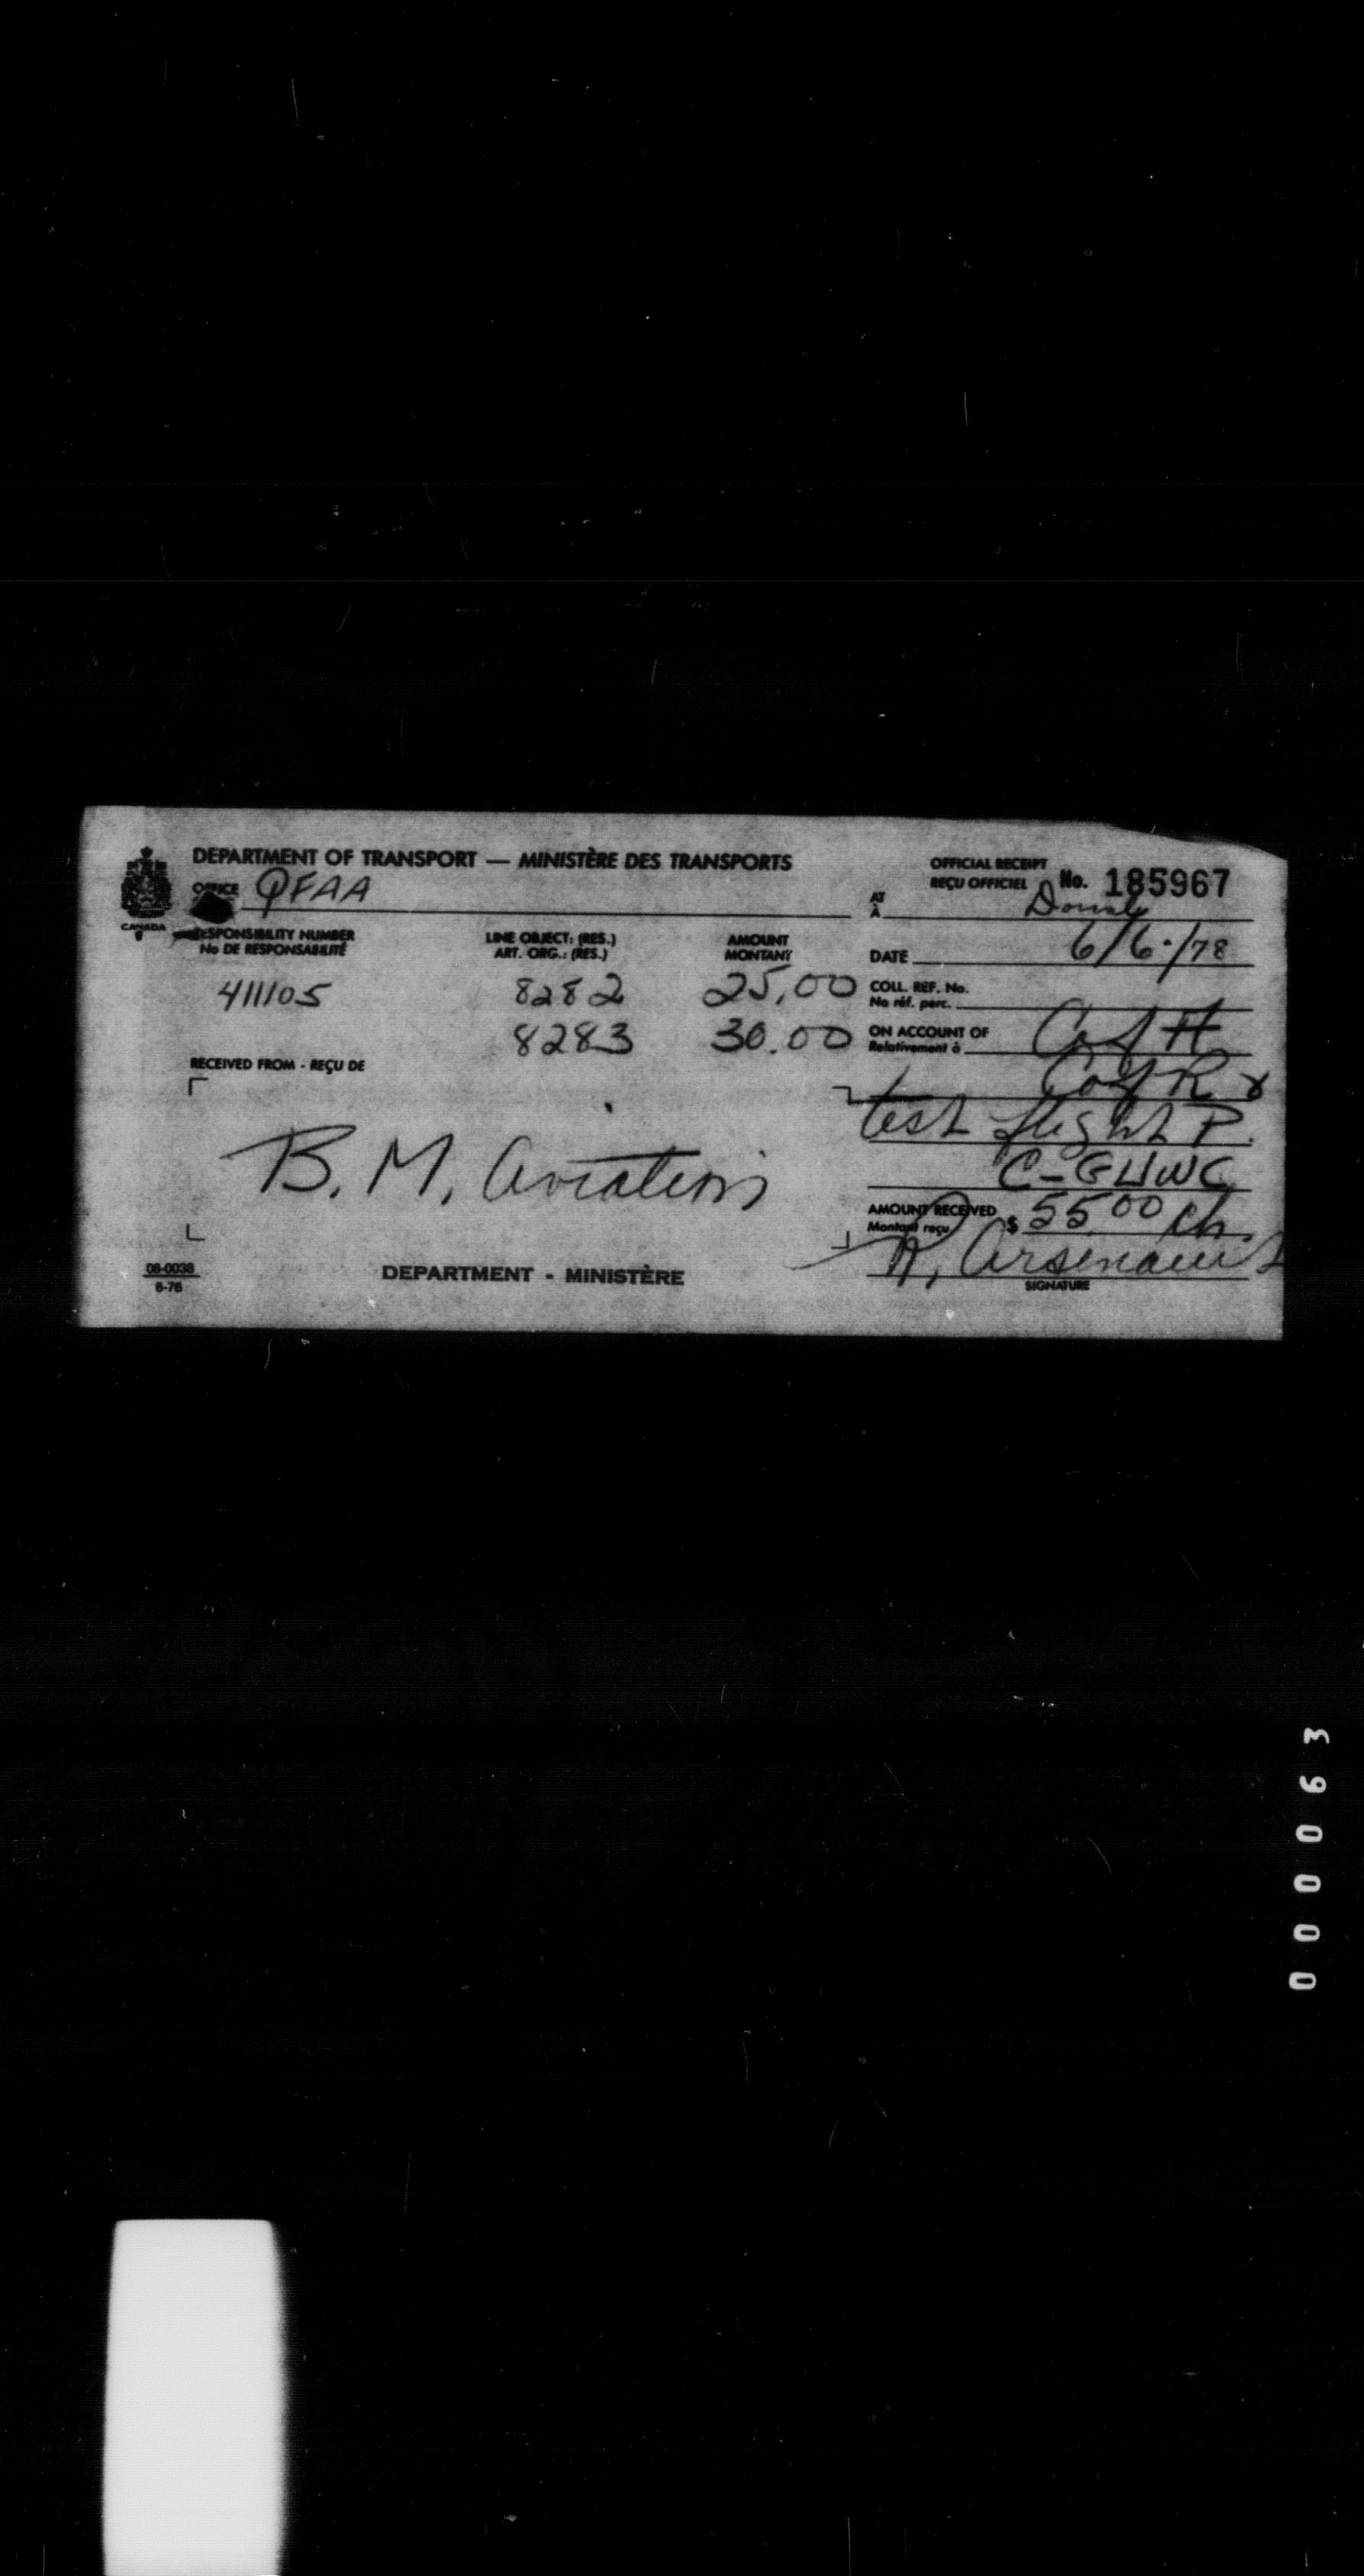 DEPARTMENT OF TRANSPORT — MINISTÈRE DES TRANSPORTS
OFFICIAL RECEIPT
REÇU OFFICIEL No. 185967
OFFICE QFAA
AT
À
CANADA
RESPONSIBILITY NUMBER
No DE RESPONSABILITÉ
LINE OBJECT: (RES.)
ART. ORG.: (RES.)
AMOUNT
MONTANT
DATE 6/6/78
411105 8282 25.00
COLL. REF. No.
No réf. perc.
8283 30.00
ON ACCOUNT OF C of A
Relativement à
C of R &
RECEIVED FROM - REÇU DE
test flight P.
B. M. Aviation
AMOUNT RECEIVED
Montant reçu $ 55.00 ch.
R. Arsenault
SIGNATURE
08-0038
6-76
DEPARTMENT - MINISTÈRE
000063